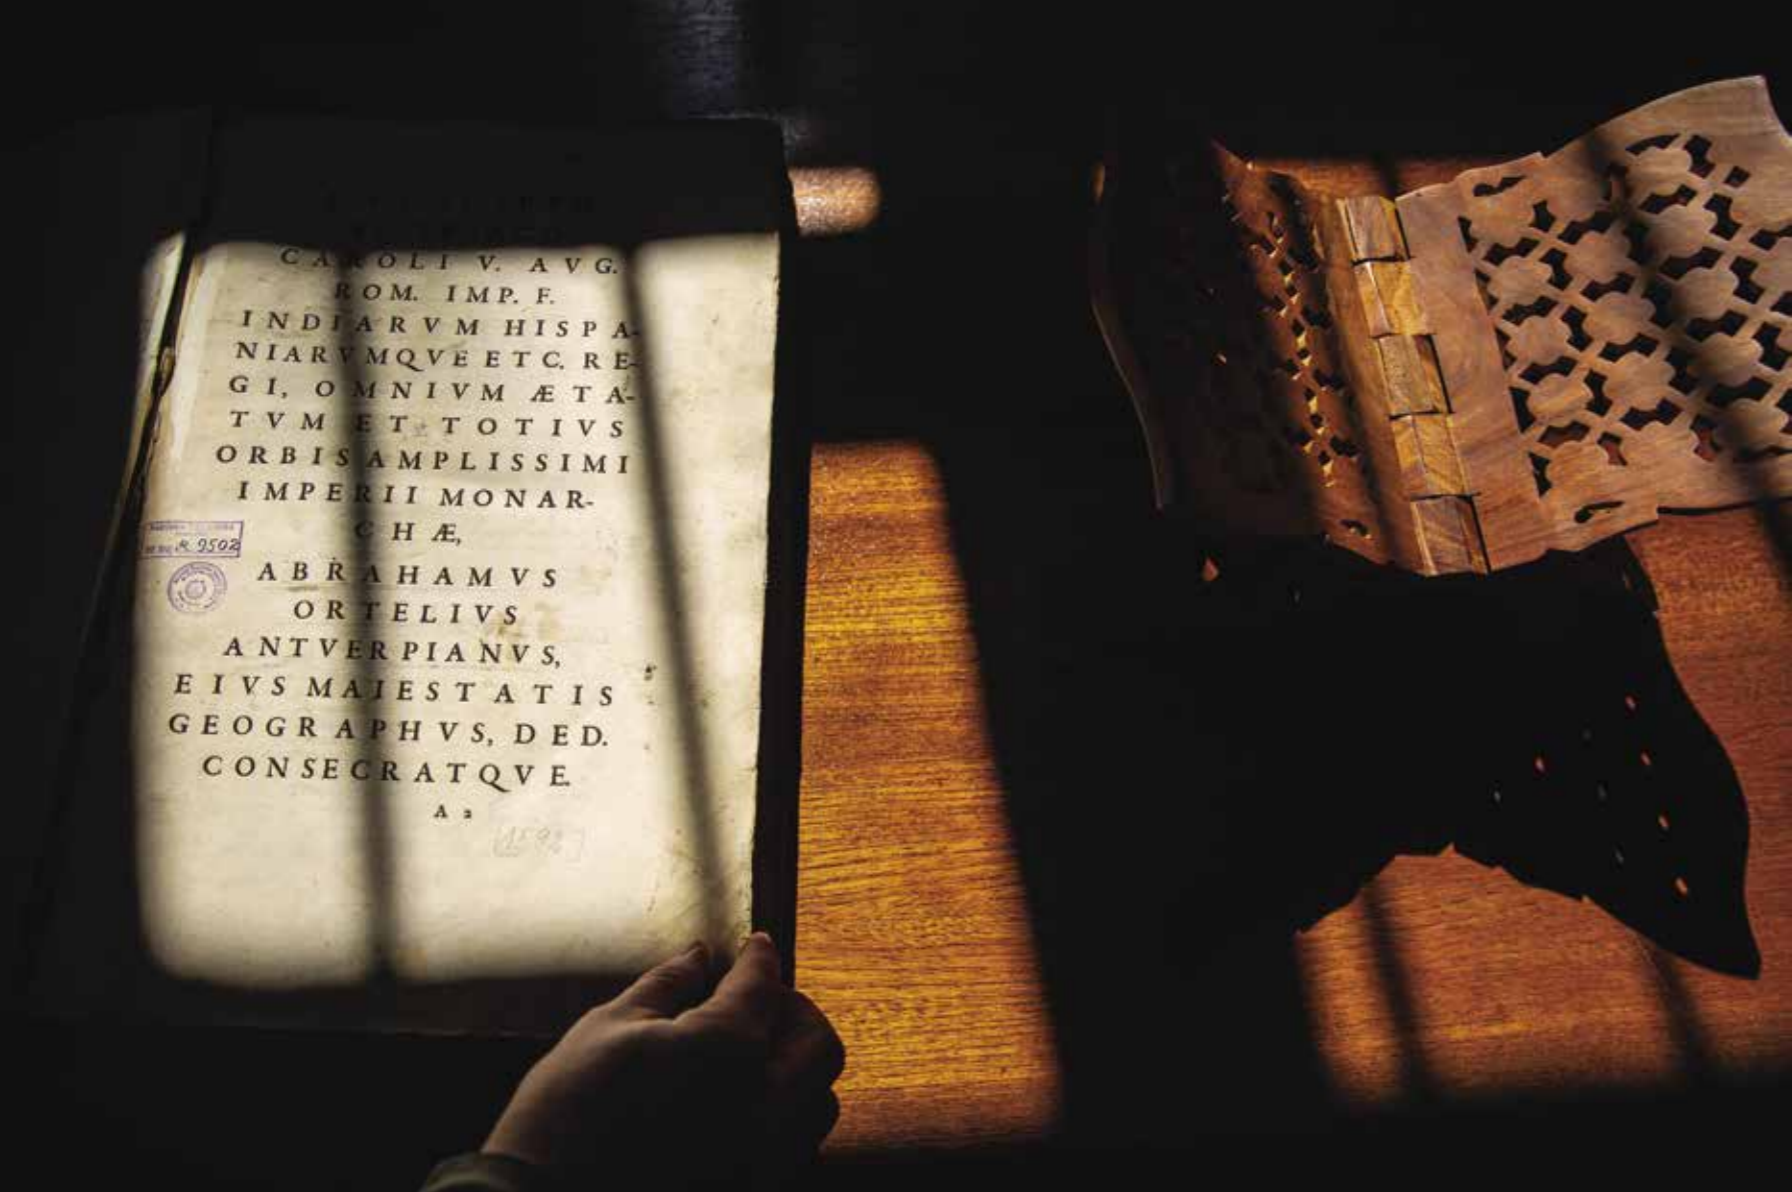 CAROLI V. AVG.
ROM. IMP. F.
INDIARVM HISPA-
NIARVMQVE ETC. RE-
GI, OMNIVM ÆTA-
TVM ET TOTIVS
ORBIS AMPLISSIMI
IMPERII MONAR-
CHÆ,
R. 9502
ABRAHAMVS
ORTELIVS
ANTVERPIANVS,
EIVS MAIESTATIS
GEOGRAPHVS, DED.
CONSECRATQVE.
A 2
[1592]